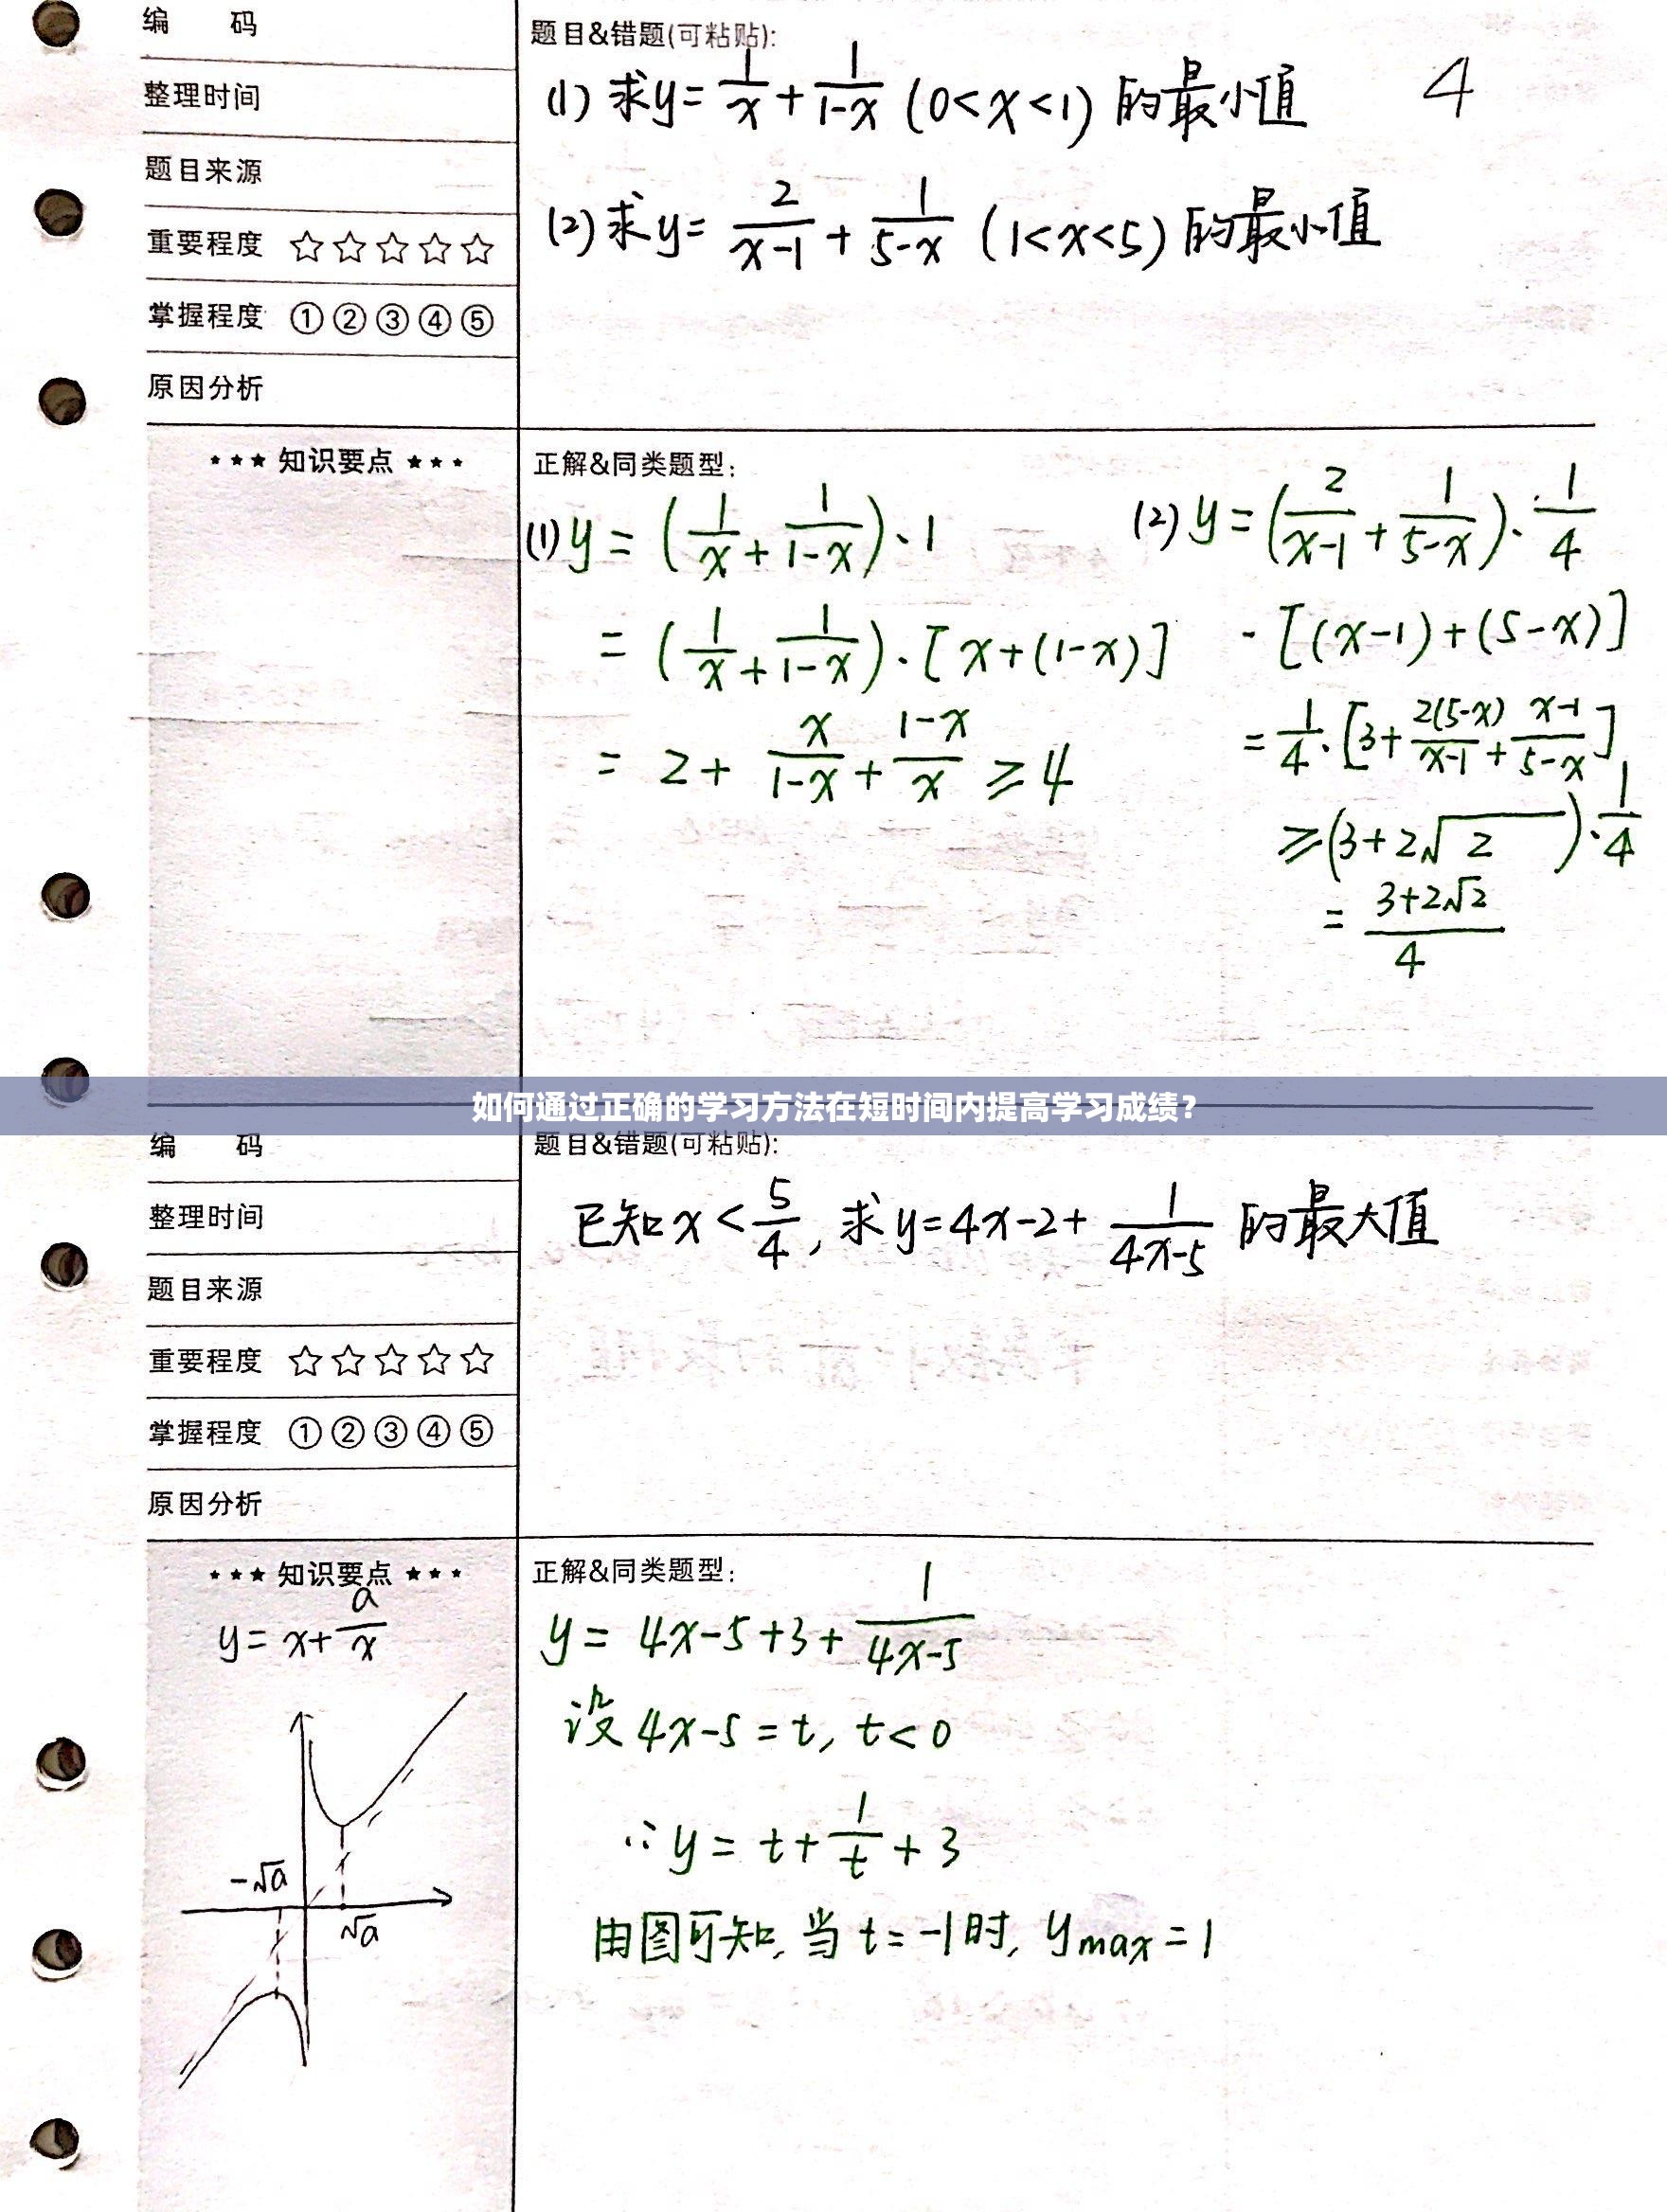 编 码
整理时间
题目来源
重要程度 ☆☆☆☆☆
掌握程度 ①②③④⑤
原因分析
题目&错题(可粘贴):
(1) 求y=1/x+1/(1-x) (0<x<1) 的最小值 4
(2) 求y=2/(x-1)+1/(5-x) (1<x<5) 的最小值
★★★ 知识要点 ★★★
正解&同类题型:
(1) y=(1/x+1/(1-x))·1
=(1/x+1/(1-x))·[x+(1-x)]
=2+x/(1-x)+(1-x)/x≥4
(2) y=(2/(x-1)+1/(5-x))·1/4
·[(x-1)+(5-x)]
=1/4·[3+2(5-x)/(x-1)+(x-1)/(5-x)]
≥(3+2√2)·1/4
=(3+2√2)/4
如何通过正确的学习方法在短时间内提高学习成绩？
编 码
整理时间
题目来源
重要程度 ☆☆☆☆☆
掌握程度 ①②③④⑤
原因分析
题目&错题(可粘贴):
已知x<5/4, 求y=4x-2+1/(4x-5) 的最大值
★★★ 知识要点 ★★★
y=x+a/x
-√a
√a
正解&同类题型:
y=4x-5+3+1/(4x-5)
设4x-5=t, t<0
∵y=t+1/t+3
由图可知, 当t=-1时, ymax=1